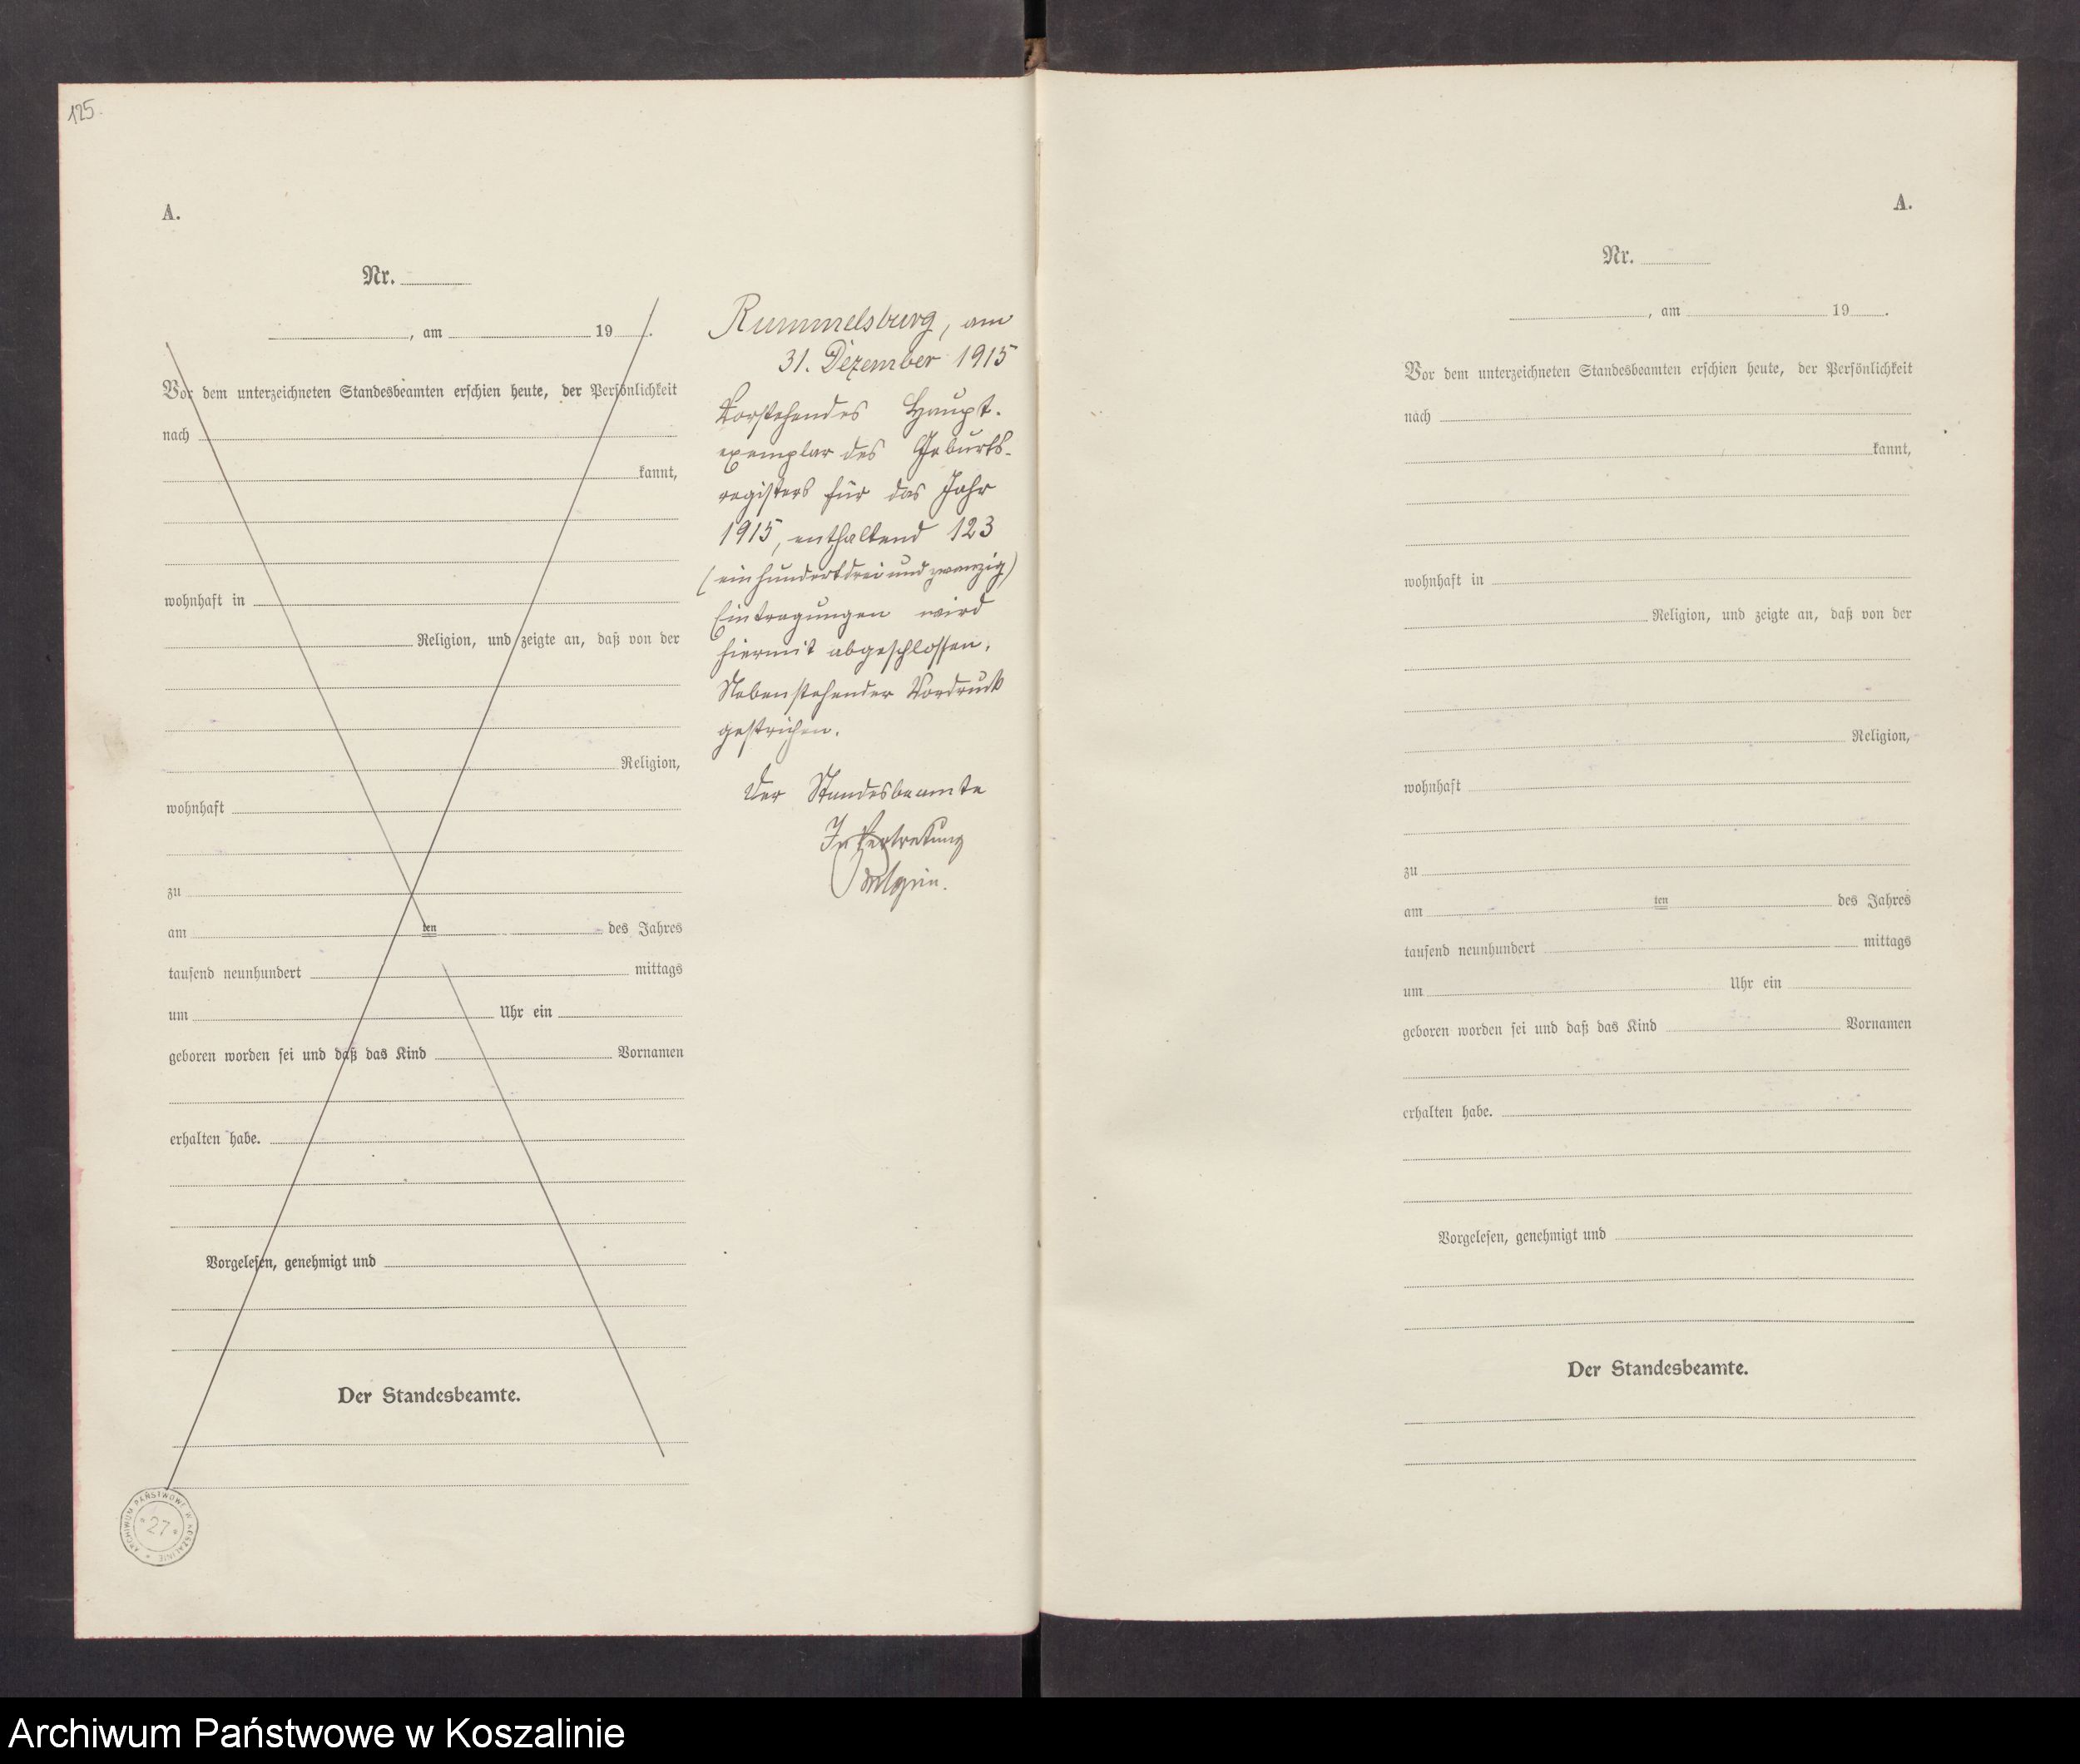 125.
A.
Nr.
, am 19 .
Vor dem unterzeichneten Standesbeamten erschien heute, der Persönlichkeit
nach
kannt,
wohnhaft in
Religion, und zeigte an, daß von der
Religion,
wohnhaft
zu
am ten des Jahres
tausend neunhundert mittags
um Uhr ein
geboren worden sei und daß das Kind Vornamen
erhalten habe.
Vorgelesen, genehmigt und
Der Standesbeamte.
ARCHIWUM PAŃSTWOWE W KOSZALINIE
* 27 *
Rummelsburg, am
31. Dezember 1915
Vorstehendes Haupt-
exemplar des Geburts-
registers für das Jahr
1915, enthaltend 123
(einhundertdreiundzwanzig)
Eintragungen wird
hiermit abgeschlossen.
Nebenstehender Vordruck
gestrichen.
Der Standesbeamte
In Vertretung
A.
Nr.
, am 19 .
Vor dem unterzeichneten Standesbeamten erschien heute, der Persönlichkeit
nach
kannt,
wohnhaft in
Religion, und zeigte an, daß von der
Religion,
wohnhaft
zu
am ten des Jahres
tausend neunhundert mittags
um Uhr ein
geboren worden sei und daß das Kind Vornamen
erhalten habe.
Vorgelesen, genehmigt und
Der Standesbeamte.
Archiwum Państwowe w Koszalinie